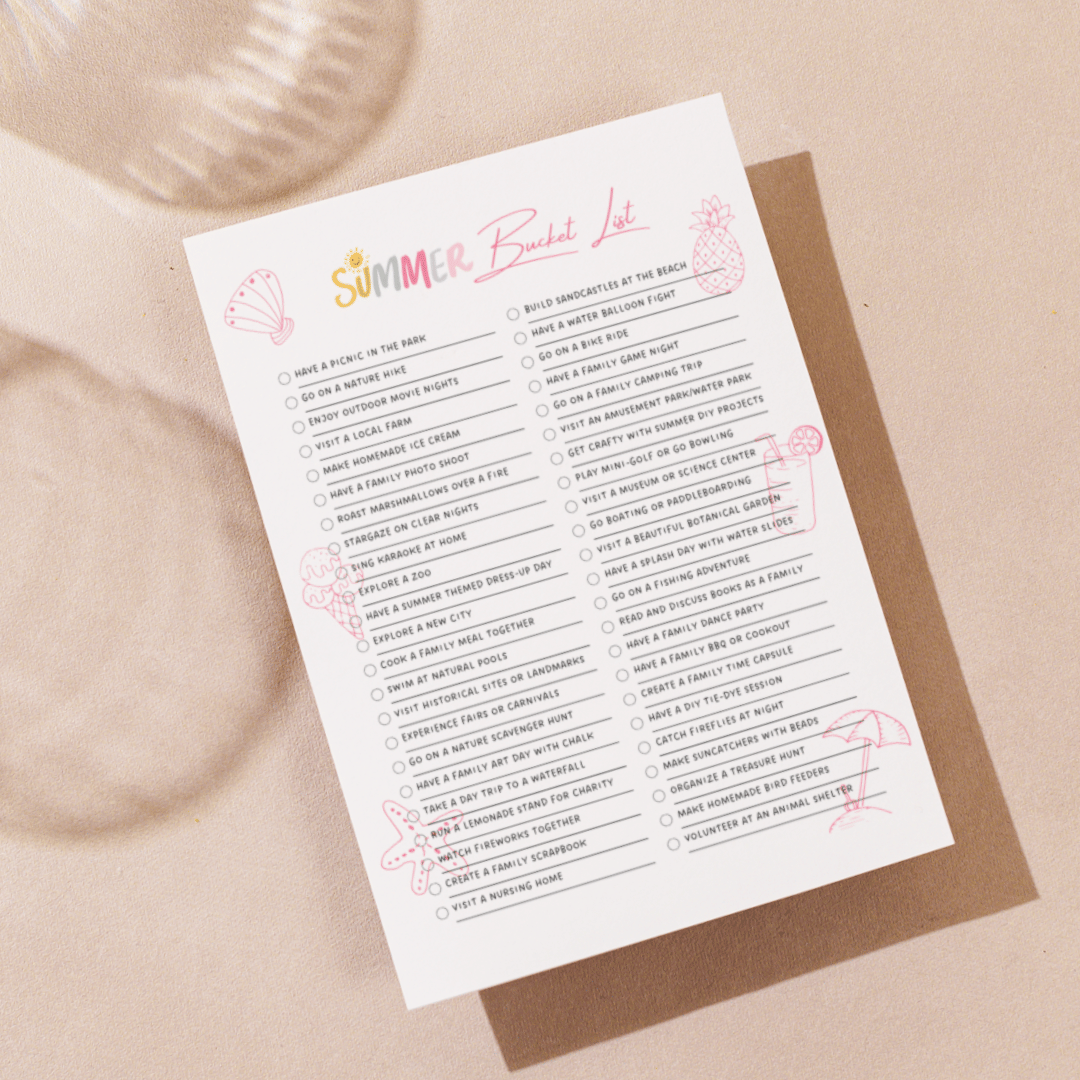 SUMMER Bucket List
HAVE A PICNIC IN THE PARK
GO ON A NATURE HIKE
ENJOY OUTDOOR MOVIE NIGHTS
VISIT A LOCAL FARM
MAKE HOMEMADE ICE CREAM
HAVE A FAMILY PHOTO SHOOT
ROAST MARSHMALLOWS OVER A FIRE
STARGAZE ON CLEAR NIGHTS
SING KARAOKE AT HOME
EXPLORE A ZOO
HAVE A SUMMER THEMED DRESS-UP DAY
EXPLORE A NEW CITY
COOK A FAMILY MEAL TOGETHER
SWIM AT NATURAL POOLS
VISIT HISTORICAL SITES OR LANDMARKS
EXPERIENCE FAIRS OR CARNIVALS
GO ON A NATURE SCAVENGER HUNT
HAVE A FAMILY ART DAY WITH CHALK
TAKE A DAY TRIP TO A WATERFALL
RUN A LEMONADE STAND FOR CHARITY
WATCH FIREWORKS TOGETHER
CREATE A FAMILY SCRAPBOOK
VISIT A NURSING HOME
BUILD SANDCASTLES AT THE BEACH
HAVE A WATER BALLOON FIGHT
GO ON A BIKE RIDE
HAVE A FAMILY GAME NIGHT
GO ON A FAMILY CAMPING TRIP
VISIT AN AMUSEMENT PARK/WATER PARK
GET CRAFTY WITH SUMMER DIY PROJECTS
PLAY MINI-GOLF OR GO BOWLING
VISIT A MUSEUM OR SCIENCE CENTER
GO BOATING OR PADDLEBOARDING
VISIT A BEAUTIFUL BOTANICAL GARDEN
HAVE A SPLASH DAY WITH WATER SLIDES
GO ON A FISHING ADVENTURE
READ AND DISCUSS BOOKS AS A FAMILY
HAVE A FAMILY DANCE PARTY
HAVE A FAMILY BBQ OR COOKOUT
CREATE A FAMILY TIME CAPSULE
HAVE A DIY TIE-DYE SESSION
CATCH FIREFLIES AT NIGHT
MAKE SUNCATCHERS WITH BEADS
ORGANIZE A TREASURE HUNT
MAKE HOMEMADE BIRD FEEDERS
VOLUNTEER AT AN ANIMAL SHELTER